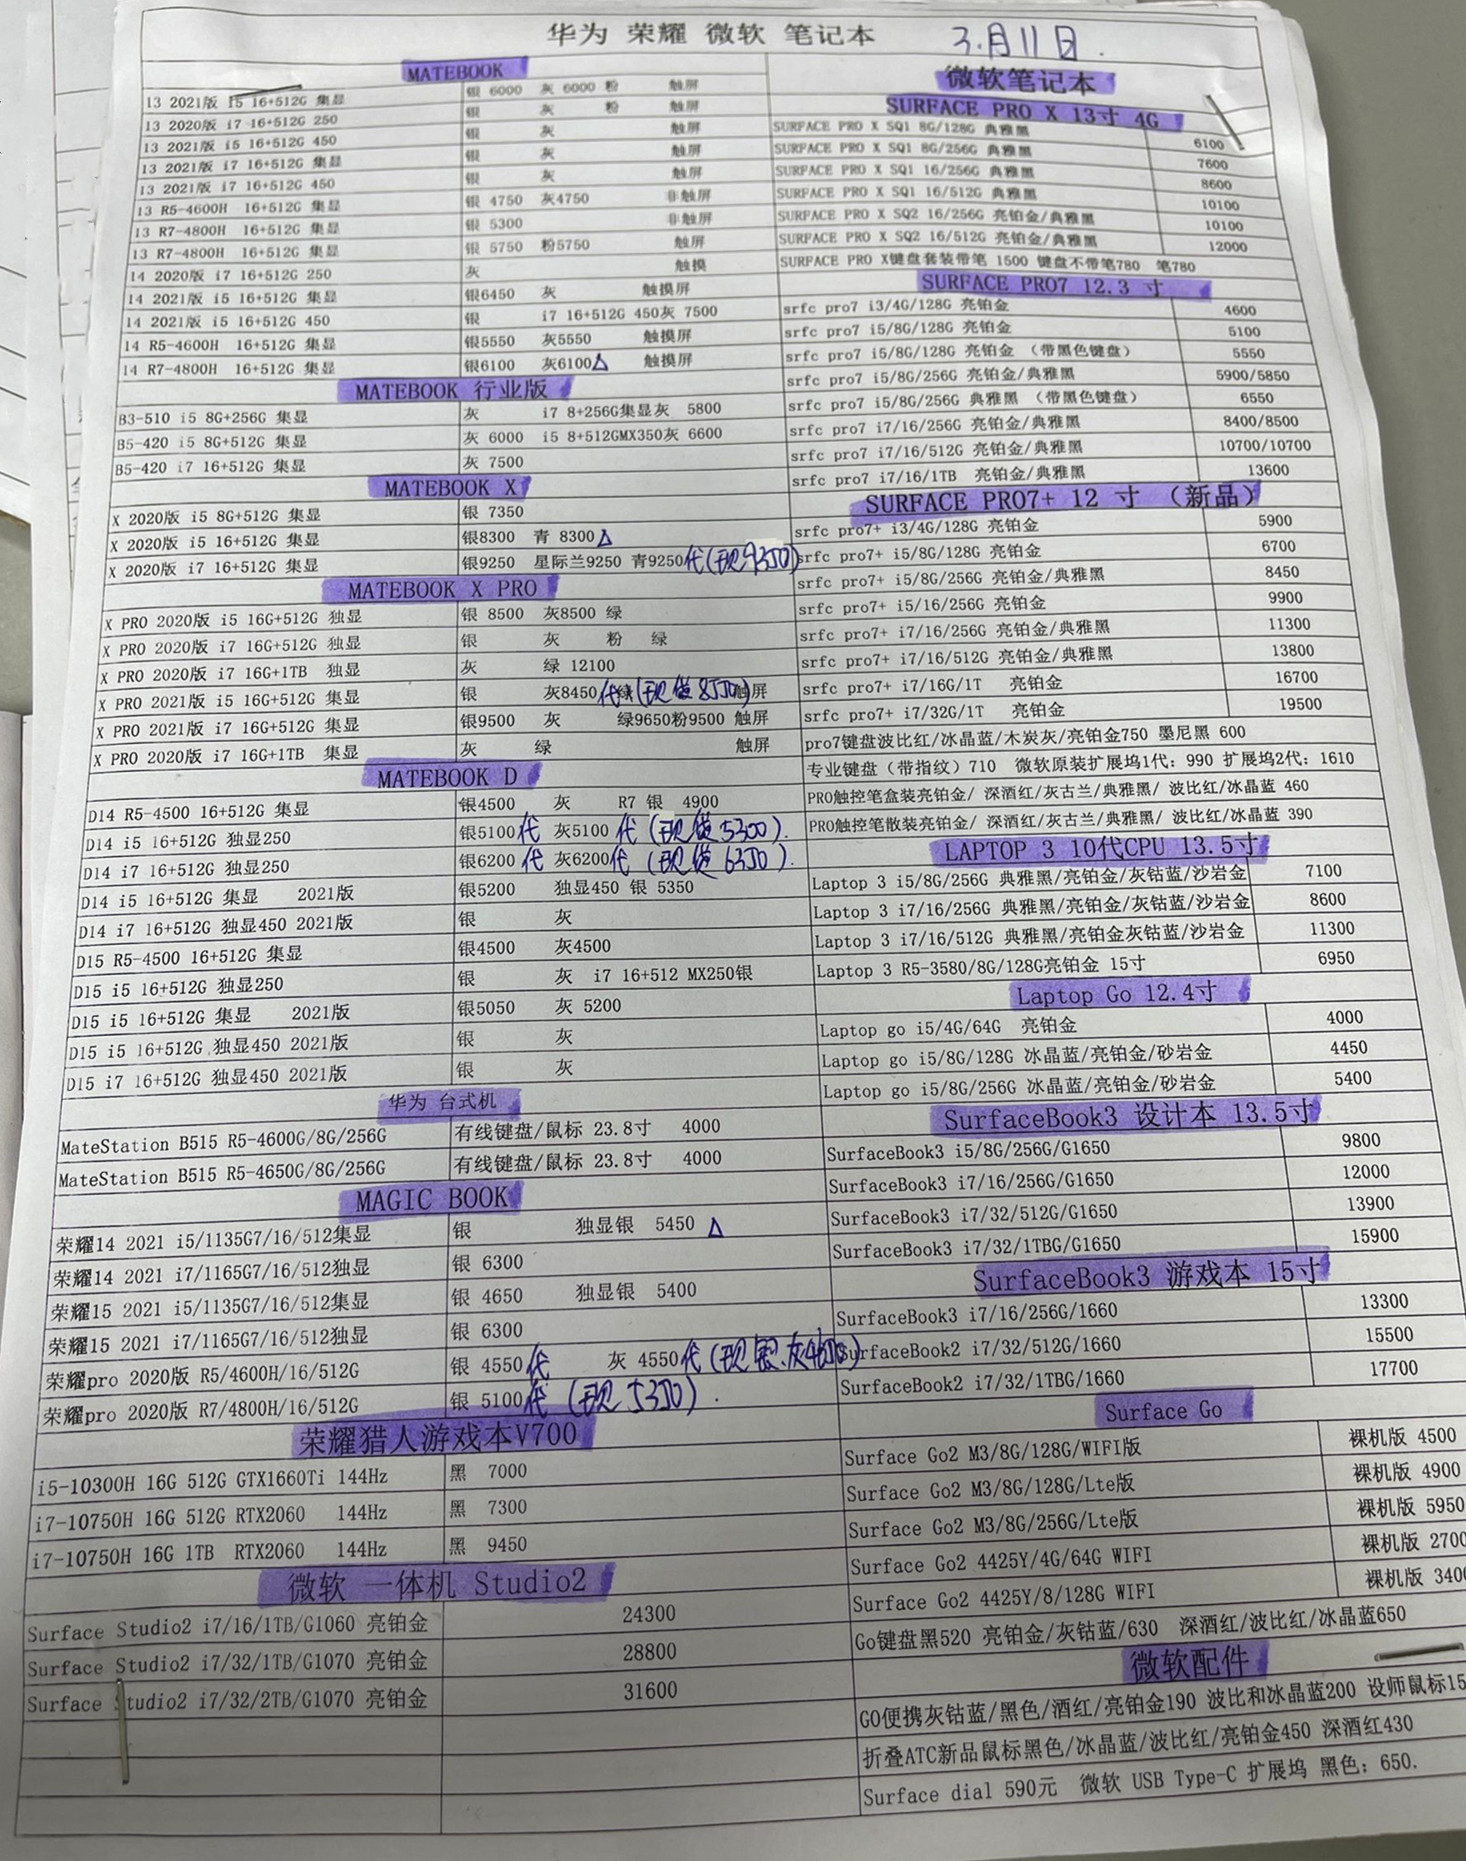 华为 荣耀 微软 笔记本 3.月11日.
MATEBOOK
13 2021版 i5 16+512G 集显 银 6000 灰 6000 粉 触屏
13 2020版 i7 16+512G 250 银 灰 粉 触屏
13 2021版 i5 16+512G 450 银 灰 触屏
13 2021版 i7 16+512G 集显 银 灰 触屏
13 2021版 i7 16+512G 450 银 灰 触屏
13 R5-4600H 16+512G 集显 银 4750 灰4750 非触屏
13 R7-4800H 16+512G 集显 银 5300 非触屏
13 R7-4800H 16+512G 集显 银 5750 粉5750 触屏
14 2020版 i7 16+512G 250 灰 触摸
14 2021版 i5 16+512G 集显 银6450 灰 触摸屏
14 2021版 i5 16+512G 450 银 i7 16+512G 450灰 7500
14 R5-4600H 16+512G 集显 银5550 灰5550 触摸屏
14 R7-4800H 16+512G 集显 银6100 灰6100△ 触摸屏
MATEBOOK 行业版
B3-510 i5 8G+256G 集显 灰 i7 8+256G集显灰 5800
B5-420 i5 8G+512G 集显 灰 6000 i5 8+512GMX350灰 6600
B5-420 i7 16+512G 集显 灰 7500
MATEBOOK X
X 2020版 i5 8G+512G 集显 银 7350
X 2020版 i5 16+512G 集显 银8300 青 8300△
X 2020版 i7 16+512G 集显 银9250 星际兰9250 青9250代(现9350)
MATEBOOK X PRO
X PRO 2020版 i5 16G+512G 独显 银 8500 灰8500 绿
X PRO 2020版 i7 16G+512G 独显 银 灰 粉 绿
X PRO 2020版 i7 16G+1TB 独显 灰 绿 12100
X PRO 2021版 i5 16G+512G 集显 银 灰8450代(现货8550)触屏
X PRO 2021版 i7 16G+512G 集显 银9500 灰 绿9650粉9500 触屏
X PRO 2020版 i7 16G+1TB 集显 灰 绿 触屏
MATEBOOK D
D14 R5-4500 16+512G 集显 银4500 灰 R7 银 4900
D14 i5 16+512G 独显250 银5100代 灰5100 代(现货5300).
D14 i7 16+512G 独显250 银6200 代 灰6200代 (现货6350).
D14 i5 16+512G 集显 2021版 银5200 独显450 银 5350
D14 i7 16+512G 独显450 2021版 银 灰
D15 R5-4500 16+512G 集显 银4500 灰4500
D15 i5 16+512G 独显250 银 灰 i7 16+512 MX250银
D15 i5 16+512G 集显 2021版 银5050 灰 5200
D15 i5 16+512G 独显450 2021版 银 灰
D15 i7 16+512G 独显450 2021版 银 灰
华为 台式机
MateStation B515 R5-4600G/8G/256G 有线键盘/鼠标 23.8寸 4000
MateStation B515 R5-4650G/8G/256G 有线键盘/鼠标 23.8寸 4000
MAGIC BOOK
荣耀14 2021 i5/1135G7/16/512集显 银 独显银 5450 △
荣耀14 2021 i7/1165G7/16/512独显 银 6300
荣耀15 2021 i5/1135G7/16/512集显 银 4650 独显银 5400
荣耀15 2021 i7/1165G7/16/512独显 银 6300
荣耀pro 2020版 R5/4600H/16/512G 银 4550代 灰 4550代(现银.灰4650)
荣耀pro 2020版 R7/4800H/16/512G 银 5100代 (现5350).
荣耀猎人游戏本V700
i5-10300H 16G 512G GTX1660Ti 144Hz 黑 7000
i7-10750H 16G 512G RTX2060 144Hz 黑 7300
i7-10750H 16G 1TB RTX2060 144Hz 黑 9450
微软 一体机 Studio2
Surface Studio2 i7/16/1TB/G1060 亮铂金 24300
Surface Studio2 i7/32/1TB/G1070 亮铂金 28800
Surface Studio2 i7/32/2TB/G1070 亮铂金 31600
微软笔记本
SURFACE PRO X 13寸 4G
SURFACE PRO X SQ1 8G/128G 典雅黑 6100
SURFACE PRO X SQ1 8G/256G 典雅黑 7600
SURFACE PRO X SQ1 16/256G 典雅黑 8600
SURFACE PRO X SQ1 16/512G 典雅黑 10100
SURFACE PRO X SQ2 16/256G 亮铂金/典雅黑 10100
SURFACE PRO X SQ2 16/512G 亮铂金/典雅黑 12000
SURFACE PRO X键盘套装带笔 1500 键盘不带笔780 笔780
SURFACE PRO7 12.3 寸
srfc pro7 i3/4G/128G 亮铂金 4600
srfc pro7 i5/8G/128G 亮铂金 5100
srfc pro7 i5/8G/128G 亮铂金 (带黑色键盘) 5550
srfc pro7 i5/8G/256G 亮铂金/典雅黑 5900/5850
srfc pro7 i5/8G/256G 典雅黑 (带黑色键盘) 6550
srfc pro7 i7/16/256G 亮铂金/典雅黑 8400/8500
srfc pro7 i7/16/512G 亮铂金/典雅黑 10700/10700
srfc pro7 i7/16/1TB 亮铂金/典雅黑 13600
SURFACE PRO7+ 12 寸 (新品)
srfc pro7+ i3/4G/128G 亮铂金 5900
srfc pro7+ i5/8G/128G 亮铂金 6700
srfc pro7+ i5/8G/256G 亮铂金/典雅黑 8450
srfc pro7+ i5/16/256G 亮铂金 9900
srfc pro7+ i7/16/256G 亮铂金/典雅黑 11300
srfc pro7+ i7/16/512G 亮铂金/典雅黑 13800
srfc pro7+ i7/16G/1T 亮铂金 16700
srfc pro7+ i7/32G/1T 亮铂金 19500
pro7键盘波比红/冰晶蓝/木炭灰/亮铂金750 墨尼黑 600
专业键盘（带指纹）710 微软原装扩展坞1代: 990 扩展坞2代: 1610
PRO触控笔盒装亮铂金/ 深酒红/灰古兰/典雅黑/ 波比红/冰晶蓝 460
PRO触控笔散装亮铂金/ 深酒红/灰古兰/典雅黑/ 波比红/冰晶蓝 390
LAPTOP 3 10代CPU 13.5寸
Laptop 3 i5/8G/256G 典雅黑/亮铂金/灰钴蓝/沙岩金 7100
Laptop 3 i7/16/256G 典雅黑/亮铂金/灰钴蓝/沙岩金 8600
Laptop 3 i7/16/512G 典雅黑/亮铂金灰钴蓝/沙岩金 11300
Laptop 3 R5-3580/8G/128G亮铂金 15寸 6950
Laptop Go 12.4寸
Laptop go i5/4G/64G 亮铂金 4000
Laptop go i5/8G/128G 冰晶蓝/亮铂金/砂岩金 4450
Laptop go i5/8G/256G 冰晶蓝/亮铂金/砂岩金 5400
SurfaceBook3 设计本 13.5寸
SurfaceBook3 i5/8G/256G/G1650 9800
SurfaceBook3 i7/16/256G/G1650 12000
SurfaceBook3 i7/32/512G/G1650 13900
SurfaceBook3 i7/32/1TBG/G1650 15900
SurfaceBook3 游戏本 15寸
SurfaceBook3 i7/16/256G/1660 13300
SurfaceBook2 i7/32/512G/1660 15500
SurfaceBook2 i7/32/1TBG/1660 17700
Surface Go
Surface Go2 M3/8G/128G/WIFI版 裸机版 4500
Surface Go2 M3/8G/128G/Lte版 裸机版 4900
Surface Go2 M3/8G/256G/Lte版 裸机版 5950
Surface Go2 4425Y/4G/64G WIFI 裸机版 2700
Surface Go2 4425Y/8/128G WIFI 裸机版 3400
Go键盘黑520 亮铂金/灰钴蓝/630 深酒红/波比红/冰晶蓝650
微软配件
GO便携灰钴蓝/黑色/酒红/亮铂金190 波比和冰晶蓝200 设师鼠标15
折叠ATC新品鼠标黑色/冰晶蓝/波比红/亮铂金450 深酒红430
Surface dial 590元 微软 USB Type-C 扩展坞 黑色: 650.